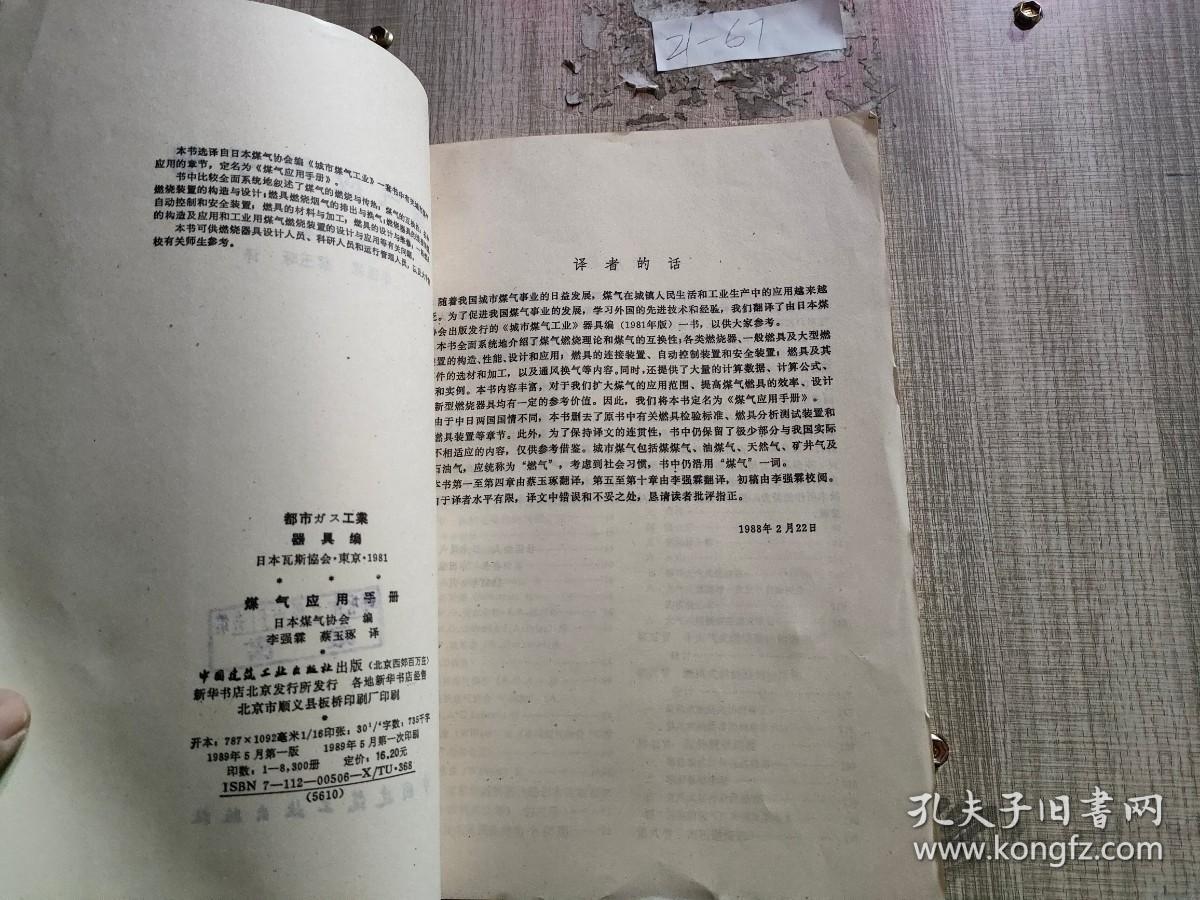 21-67
本书选译自日本煤气协会编《城市煤气工业》一套书中有关
应用的章节，定名为《煤气应用手册》。
书中比较全面系统地叙述了煤气的燃烧与传热；煤气的互换性；
燃烧装置的构造与设计；燃具燃烧烟气的排出与换气；燃烧器具的
自动控制和安全装置；燃具的材料与加工；燃具的设计与
的构造及应用和工业用煤气燃烧装置的设计与应用等有关问题。
本书可供燃烧器具设计人员、科研人员和运行管理人员，以及大
校有关师生参考。
都市ガス工業
器具编
日本瓦斯協会·東京·1981
* * *
煤气应用手册
日本煤气协会 编
李强霖 蔡玉琢 译
*
中国建筑工业出版社出版（北京西郊百万庄）
新华书店北京发行所发行 各地新华书店经售
北京市顺义县板桥印刷厂印刷
*
开本：787×1092毫米1/16印张：30¹/⁴字数：735千字
1989年5月第一版 1989年5月第一次印刷
印数：1—8,300册 定价：16.20元
ISBN 7—112—00506—X/TU·368
（5610）
译者的话
随着我国城市煤气事业的日益发展，煤气在城镇人民生活和工业生产中的应用越来越
。为了促进我国煤气事业的发展，学习外国的先进技术和经验，我们翻译了由日本煤
协会出版发行的《城市煤气工业》器具编（1981年版）一书，以供大家参考。
本书全面系统地介绍了煤气燃烧理论和煤气的互换性；各类燃烧器、一般燃具及大型燃
置的构造、性能、设计和应用；燃具的连接装置、自动控制装置和安全装置；燃具及其
件的选材和加工，以及通风换气等内容。同时，还提供了大量的计算数据、计算公式、
和实例。本书内容丰富，对于我们扩大煤气的应用范围、提高煤气燃具的效率、设计
新型燃烧器具均有一定的参考价值。因此，我们将本书定名为《煤气应用手册》。
由于中日两国国情不同，本书删去了原书中有关燃具检验标准、燃具分析测试装置和
燃具装置等章节。此外，为了保持译文的连贯性，书中仍保留了极少部分与我国实际
不相适应的内容，仅供参考借鉴。城市煤气包括煤煤气、油煤气、天然气、矿井气及
石油气，应统称为“燃气”，考虑到社会习惯，书中仍沿用“煤气”一词。
本书第一至第四章由蔡玉琢翻译，第五至第十章由李强霖翻译，初稿由李强霖校阅。
由于译者水平有限，译文中错误和不妥之处，恳请读者批评指正。
1988年2月22日
孔夫子旧书网
www.kongfz.com